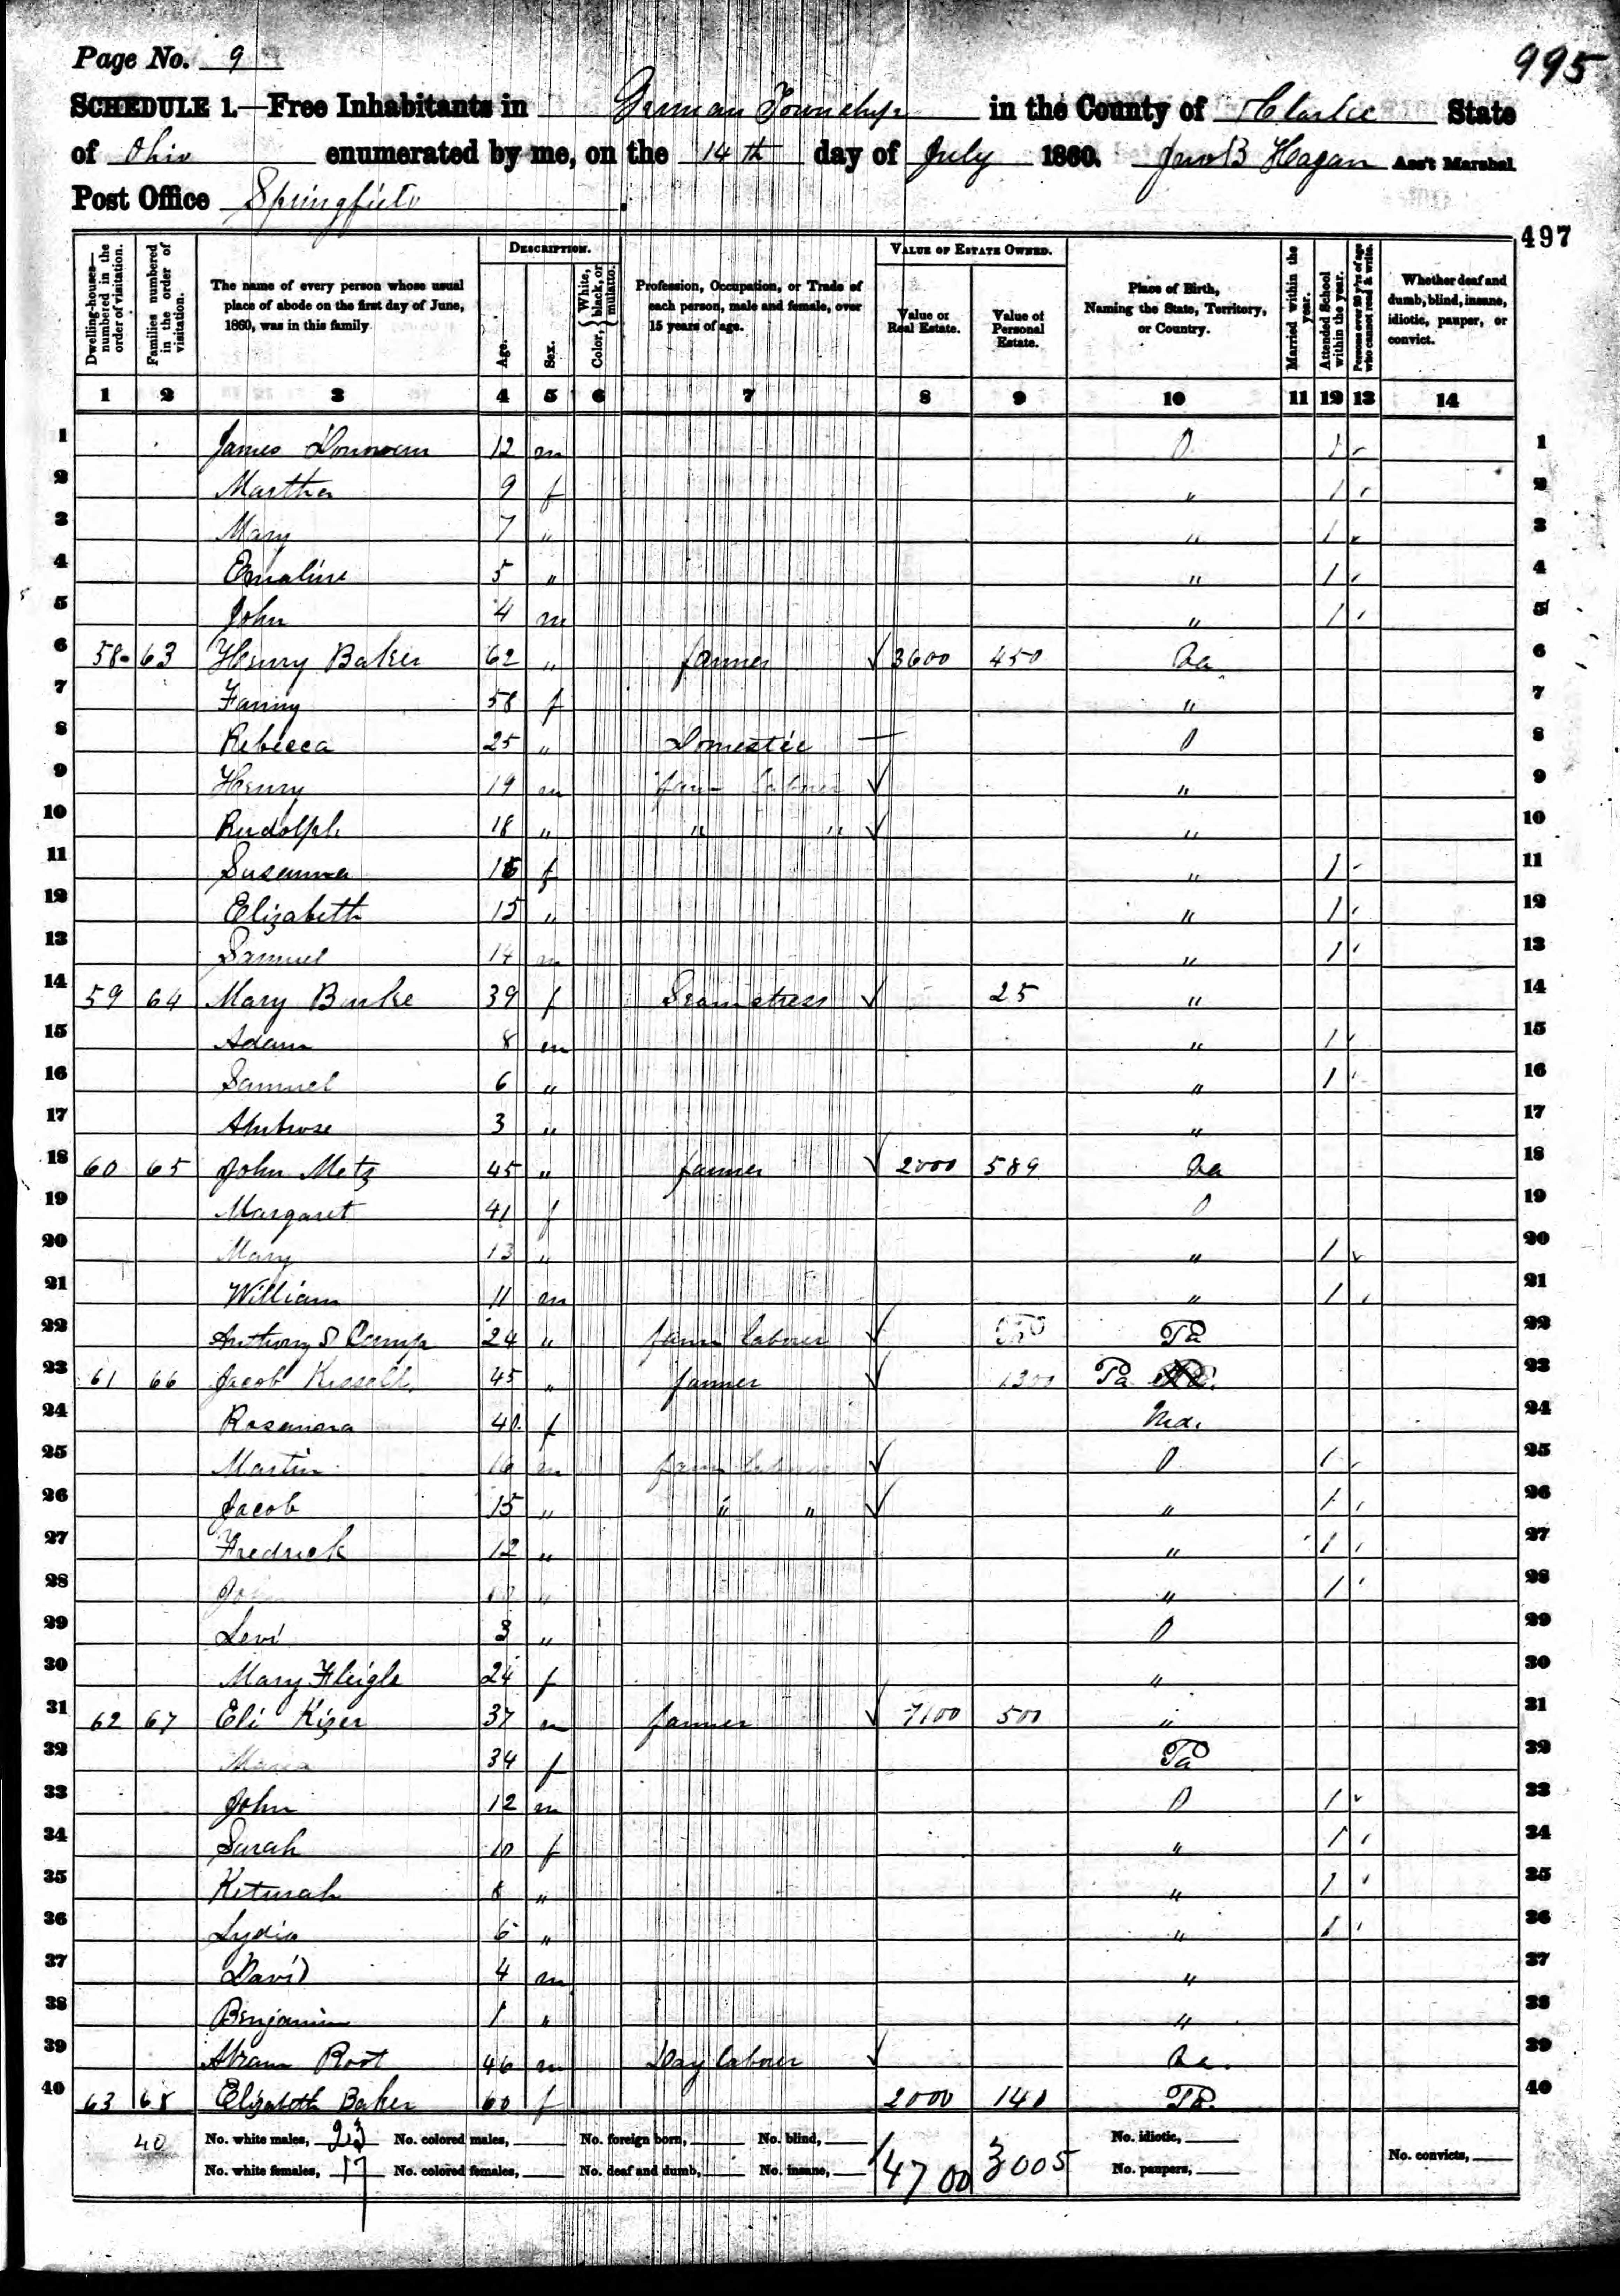 Page No. 9
995
SCHEDULE 1.—Free Inhabitants in German Township in the County of Clarke State
of Ohio enumerated by me, on the 14th day of July 1860. Jno B Hagan Ass't Marshal
Post Office Springfield.
497
Dwelling-houses—numbered in the order of visitation. Families numbered in the order of visitation. The name of every person whose usual place of abode on the first day of June, 1860, was in this family. DESCRIPTION. Age. Sex. Color, { White, black, or mulatto. Profession, Occupation, or Trade of each person, male and female, over 15 years of age. VALUE OF ESTATE OWNED. Value of Real Estate. Value of Personal Estate. Place of Birth, Naming the State, Territory, or Country. Married within the year. Attended School within the year. Persons over 20 y'rs of age who cannot read & write. Whether deaf and dumb, blind, insane, idiotic, pauper, or convict.
1 2 3 4 5 6 7 8 9 10 11 12 13 14
1 James 12 m O 1 1
2 Martha 9 f " 1 2
3 Mary 7 " " 1 3
4 Emaline 5 " " 1 4
5 John 4 m " 1 5
6 58 63 Henry Baker 62 " farmer ✓ 3600 450 Va 6
7 Fanny 58 f " 7
8 Rebecca 25 " Domestic — O 8
9 Henry 19 m farm laborer ✓ " 9
10 Rudolph 18 " " " ✓ " 10
11 Susanna 16 f " 1 11
12 Elizabeth 15 " " 1 12
13 Samuel 14 m " 1 13
14 59 64 Mary Burke 39 f Seamstress ✓ 25 " 14
15 Adam 8 m " 1 15
16 Samuel 6 " " 1 16
17 Ambrose 3 " " 17
18 60 65 John Metz 45 " farmer ✓ 2000 589 Va 18
19 Margaret 41 f O 19
20 Mary 13 " " 1 20
21 William 11 m " 1 21
22 Anthony S Camp 24 " farm laborer ✓ Pa 22
23 61 66 Jacob Kissell 45 " farmer ✓ 1300 Pa 23
24 Rosanna 40 f Md. 24
25 Martin 16 m farm laborer ✓ O 1 25
26 Jacob 15 " " " ✓ " 1 26
27 Fredrick 12 " " 1 27
28 " " 1 28
29 Levi 3 " O 29
30 Mary Fleigle 24 f " 30
31 62 67 Eli Kizer 37 m farmer ✓ 7100 500 " 31
32 Maria 34 f Pa 32
33 John 12 m O 1 33
34 Sarah 10 f " 1 34
35 Keturah 8 " " 1 35
36 Lydia 6 " " 1 36
37 David 4 m " 37
38 Benjamin 1 " " 38
39 Abram Root 46 m Day laborer ✓ Va. 39
40 63 68 Elizabeth Baker 60 f 2000 140 Pa. 40
40 No. white males, 23 No. colored males, No. foreign born, No. blind, 14700 3005 No. idiotic,
No. white females, 17 No. colored females, No. deaf and dumb, No. insane, No. paupers, No. convicts,